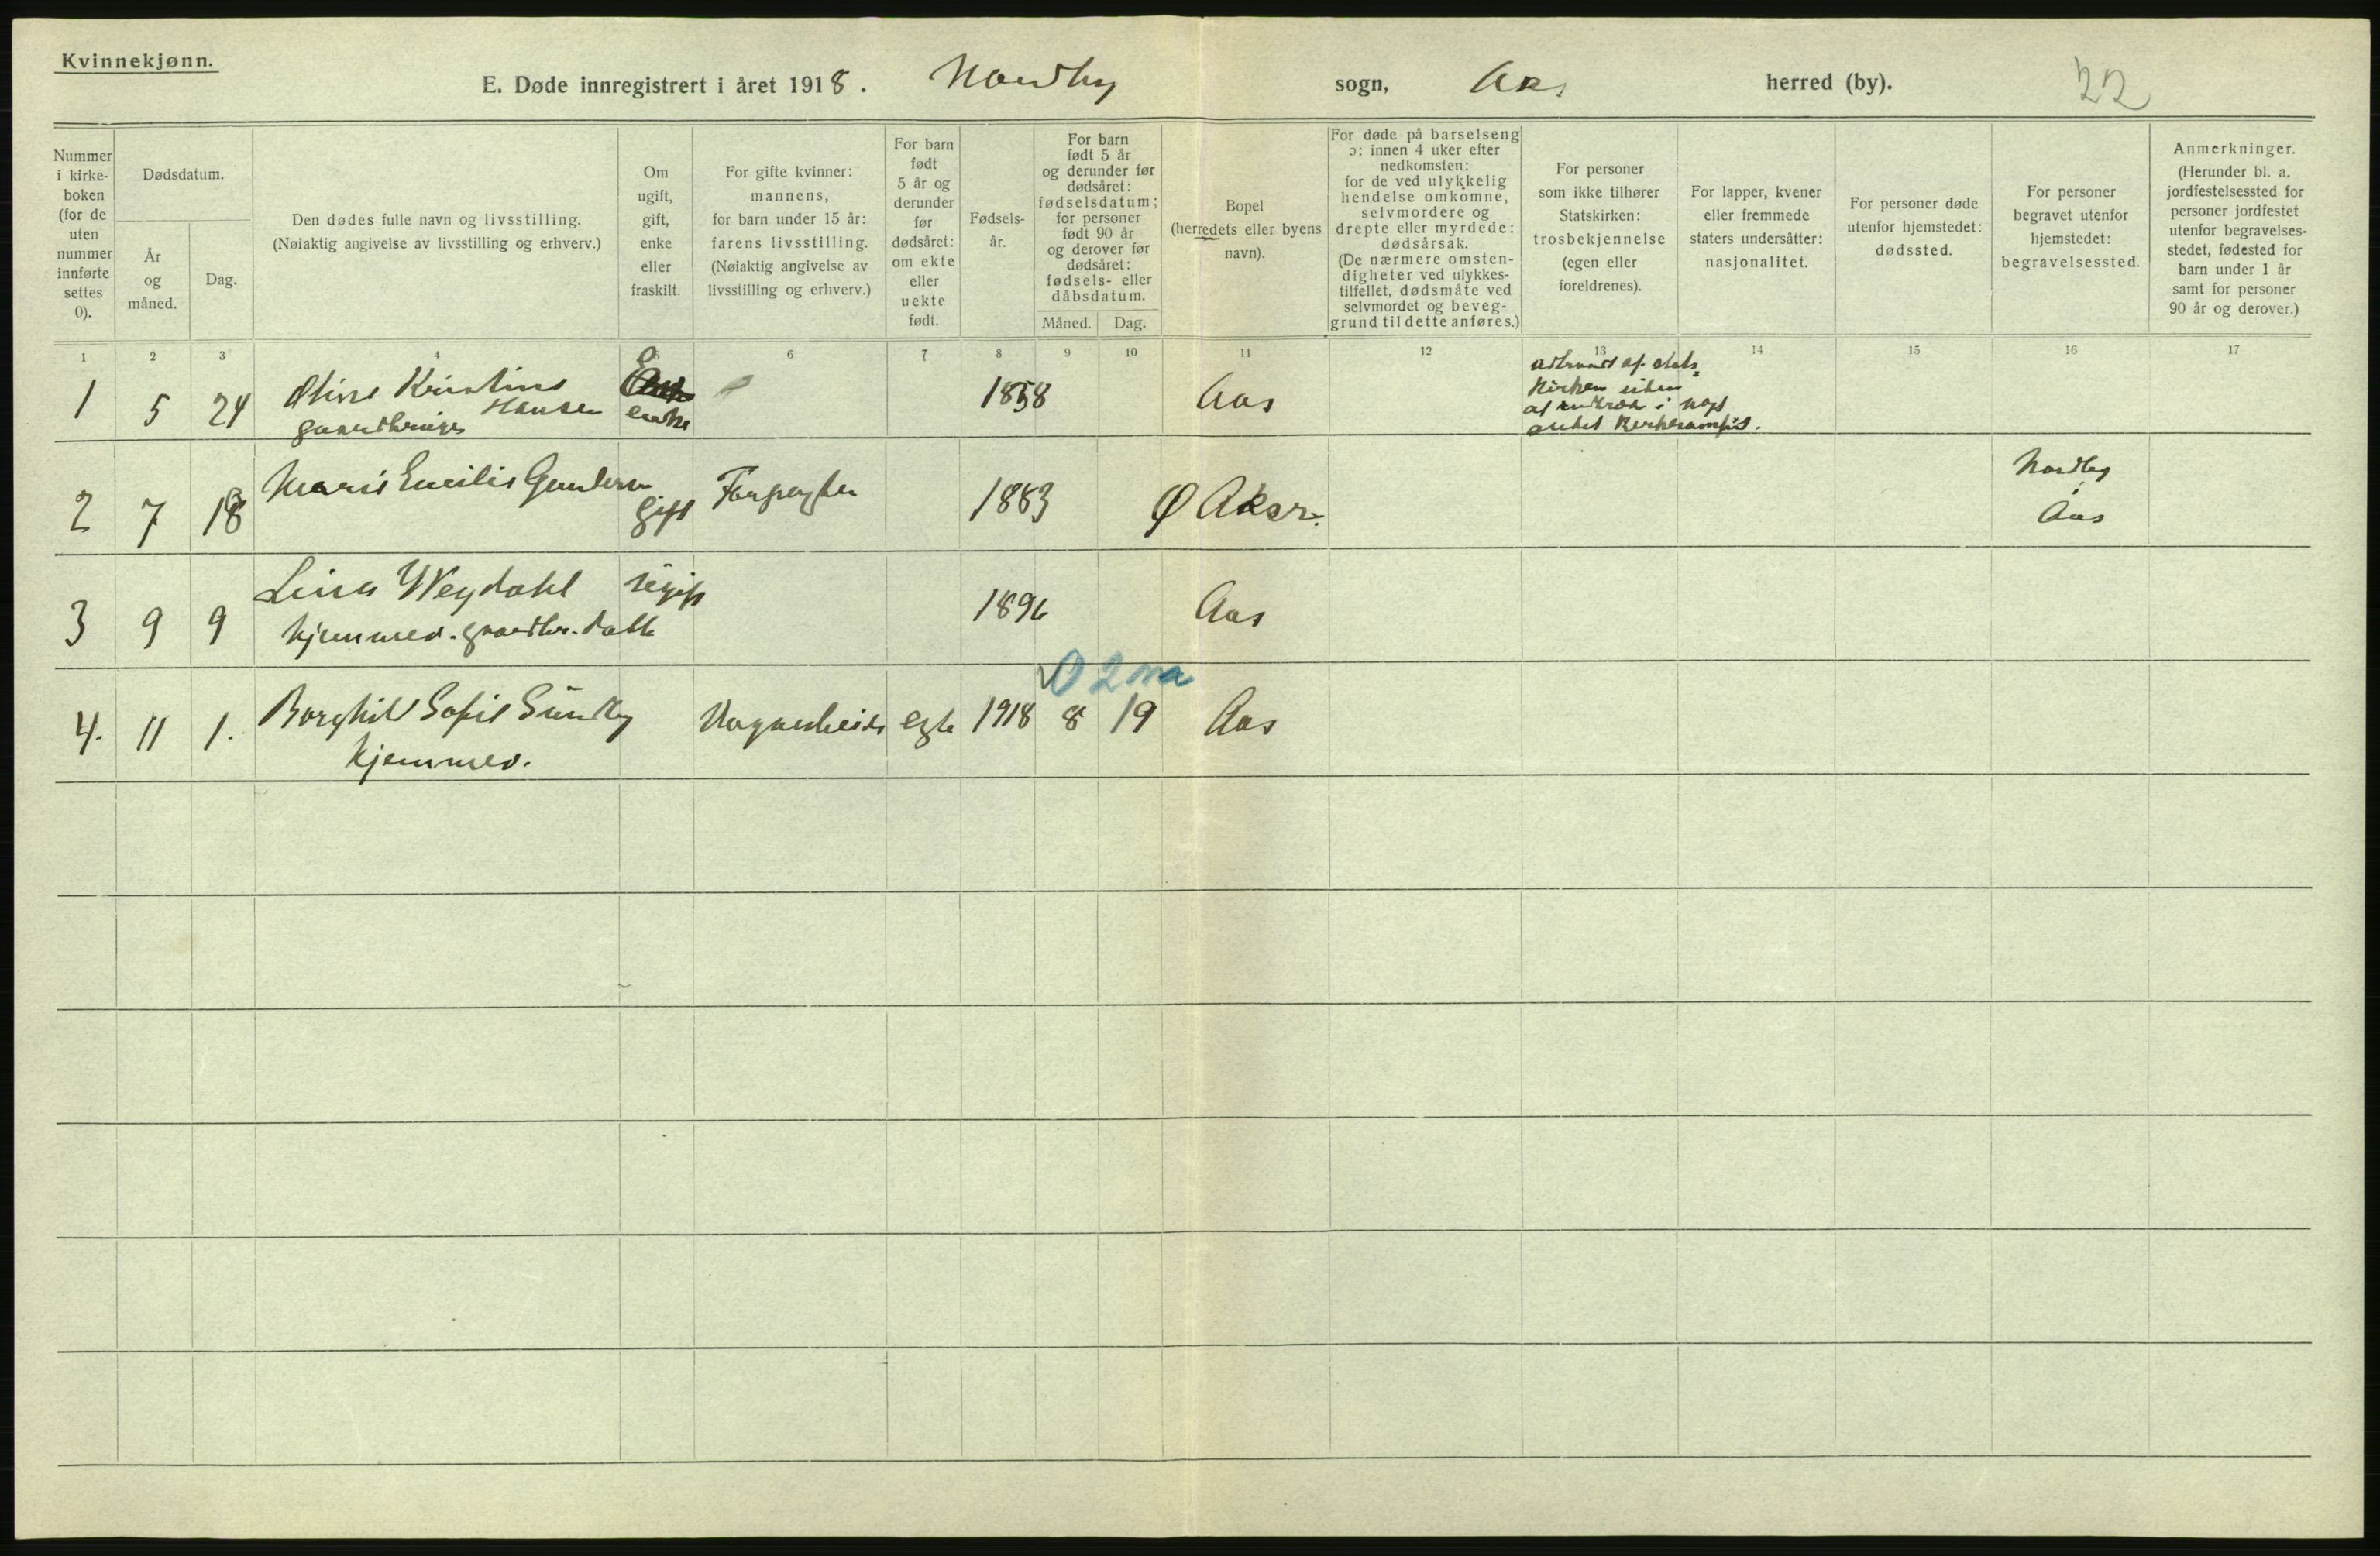 Kvinnekjønn.
E. Døde innregistrert i året 1918. Nordby sogn, Aas herred (by). 22
Nummer i kirke-boken (for de uten nummer innførte settes 0).
Dødsdatum.
År og måned.
Dag.
Den dødes fulle navn og livsstilling.
(Nøiaktig angivelse av livsstilling og erhverv.)
Om ugift, gift, enke eller fraskilt.
For gifte kvinner: mannens, for barn under 15 år: farens livsstilling. (Nøiaktig angivelse av livsstilling og erhverv.)
For barn født 5 år og derunder før dødsåret: om ekte eller uekte født.
Fødsels-år.
For barn født 5 år og derunder før dødsåret: fødselsdatum; for personer født 90 år og derover før dødsåret: fødsels- eller dåbsdatum.
Måned. Dag.
Bopel (herredets eller byens navn).
For døde på barselseng ɔ: innen 4 uker efter nedkomsten: for de ved ulykkelig hendelse omkomne, selvmordere og drepte eller myrdede: dødsårsak. (De nærmere omsten-digheter ved ulykkes-tilfellet, dødsmåte ved selvmordet og beveg-grund til dette anføres.)
For personer som ikke tilhører Statskirken: trosbekjennelse (egen eller foreldrenes).
For lapper, kvener eller fremmede staters undersåtter: nasjonalitet.
For personer døde utenfor hjemstedet: dødssted.
For personer begravet utenfor hjemstedet: begravelsessted.
Anmerkninger. (Herunder bl. a. jordfestelsessted for personer jordfestet utenfor begravelses-stedet, fødested for barn under 1 år samt for personer 90 år og derover.)
1 2 3 4 5 6 7 8 9 10 11 12 13 14 15 16 17
1 5 24 Kristine Hansen enke 1858 Aas
af stats
Kirken uden
at i noget
andet
2 7 18 Marie Emilie Gundersen gift Forpagter 1883 Ø Aker. Nordby
Aas
3 9 9 Lina Wegdahl ugift 1896 Aas
hjemmev. gaardbr. datt
0 2 ma
4. 11 1. Borghild Sofie Sundby egte 1918 8 19 Aas
hjemmev.